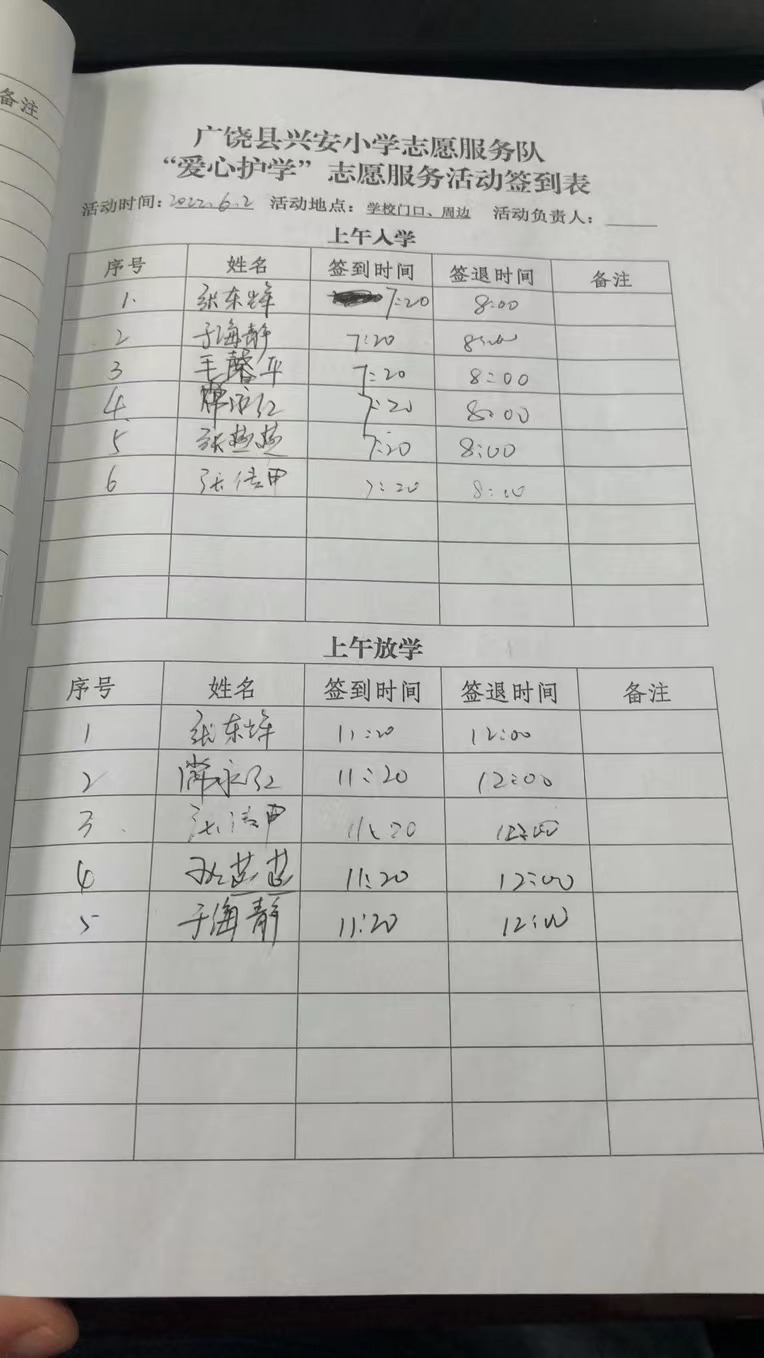 备注
广饶县兴安小学志愿服务队
“爱心护学”志愿服务活动签到表
活动时间：2022.6.2 活动地点：学校门口、周边 活动负责人：
上午入学
序号 姓名 签到时间 签退时间 备注
1. 张东峰 7:20 8:00
2 于海静 7:20 8:00
3 毛馨平 7:20 8:00
4 7:20 8:00
5 张燕燕 7:20 8:00
6 7:20 8:00
上午放学
序号 姓名 签到时间 签退时间 备注
1 张东峰 11:20 12:00
2 11:20 12:00
3 11:20 12:00
4 11:20 12:00
5 于海静 11:20 12:00